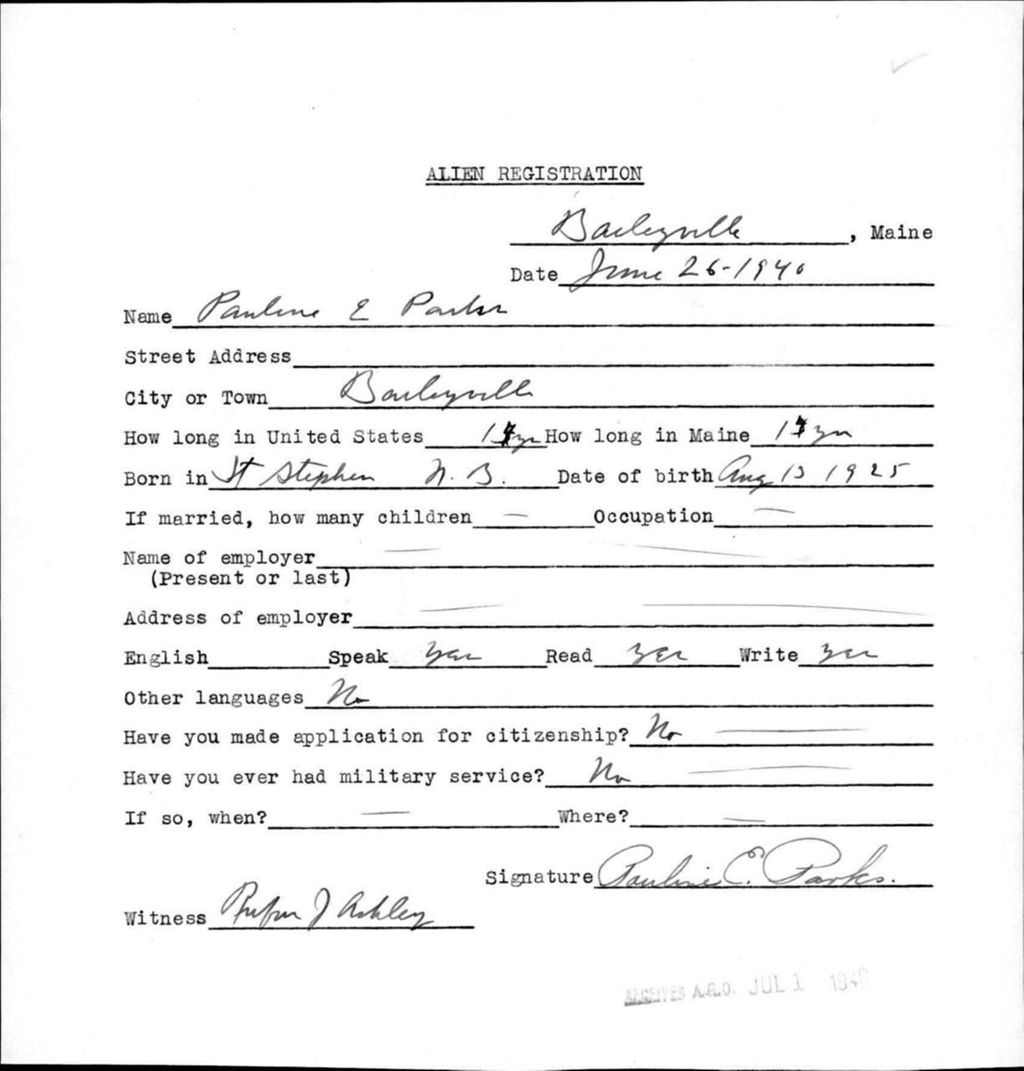 ALIEN REGISTRATION
Baileyville, Maine
Date June 26-1940
Name Pauline E Parks
Street Address
City or Town Baileyville
How long in United States yr How long in Maine yr
Born in St Stephen N.B. Date of birth Aug 13 1925
If married, how many children — Occupation —
Name of employer —
(Present or last)
Address of employer — —
English Speak Yes Read Yes Write Yes
Other languages No
Have you made application for citizenship? No —
Have you ever had military service? No —
If so, when? — Where? —
Signature Pauline E. Parks.
Witness Rufus J Ashley
RECEIVED A.G.O. JUL 1 1940